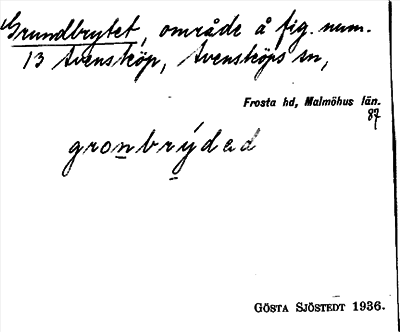 Grundbrytet, område å fig. num.
13 Svensköp, Svensköps sn,
Frosta hd, Malmöhus län.
87
gronbrýdad
GÖSTA SJÖSTEDT 1936.